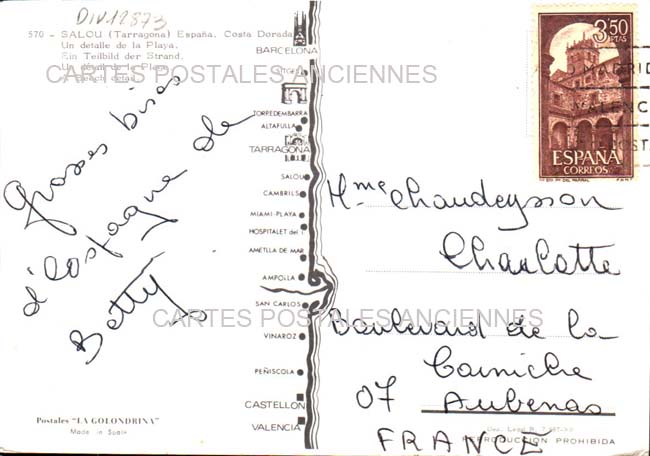 DIV.12873
570 - SALOU (Tarragona) España. Costa Dorada
Un detalle de la Playa.
Ein Teilbild der Strand.
Un détail de la Plage
A beach detail
CARTES POSTALES ANCIENNES
Grosses bises
d'Espagne de
Betty
BARCELONA
SITGES
TORREDEMBARRA
ALTAFULLA
TARRAGONA
SALOU
CAMBRILS
MIAMI-PLAYA
HOSPITALET del I
AMETLLA DE MAR
AMPOLLA
SAN CARLOS
VINAROZ
PEÑISCOLA
CASTELLON
VALENCIA
3,50
PTAS
ESPAÑA
CORREOS
MADRID
VALENC
Mme Chaudeysson
Charlotte
Boulevard de la
Corniche
07 Aubenas
FRANCE
CARTES POSTALES ANCIENNES
Postales "LA GOLONDRINA"
Made in Spain
REPRODUCCION PROHIBIDA